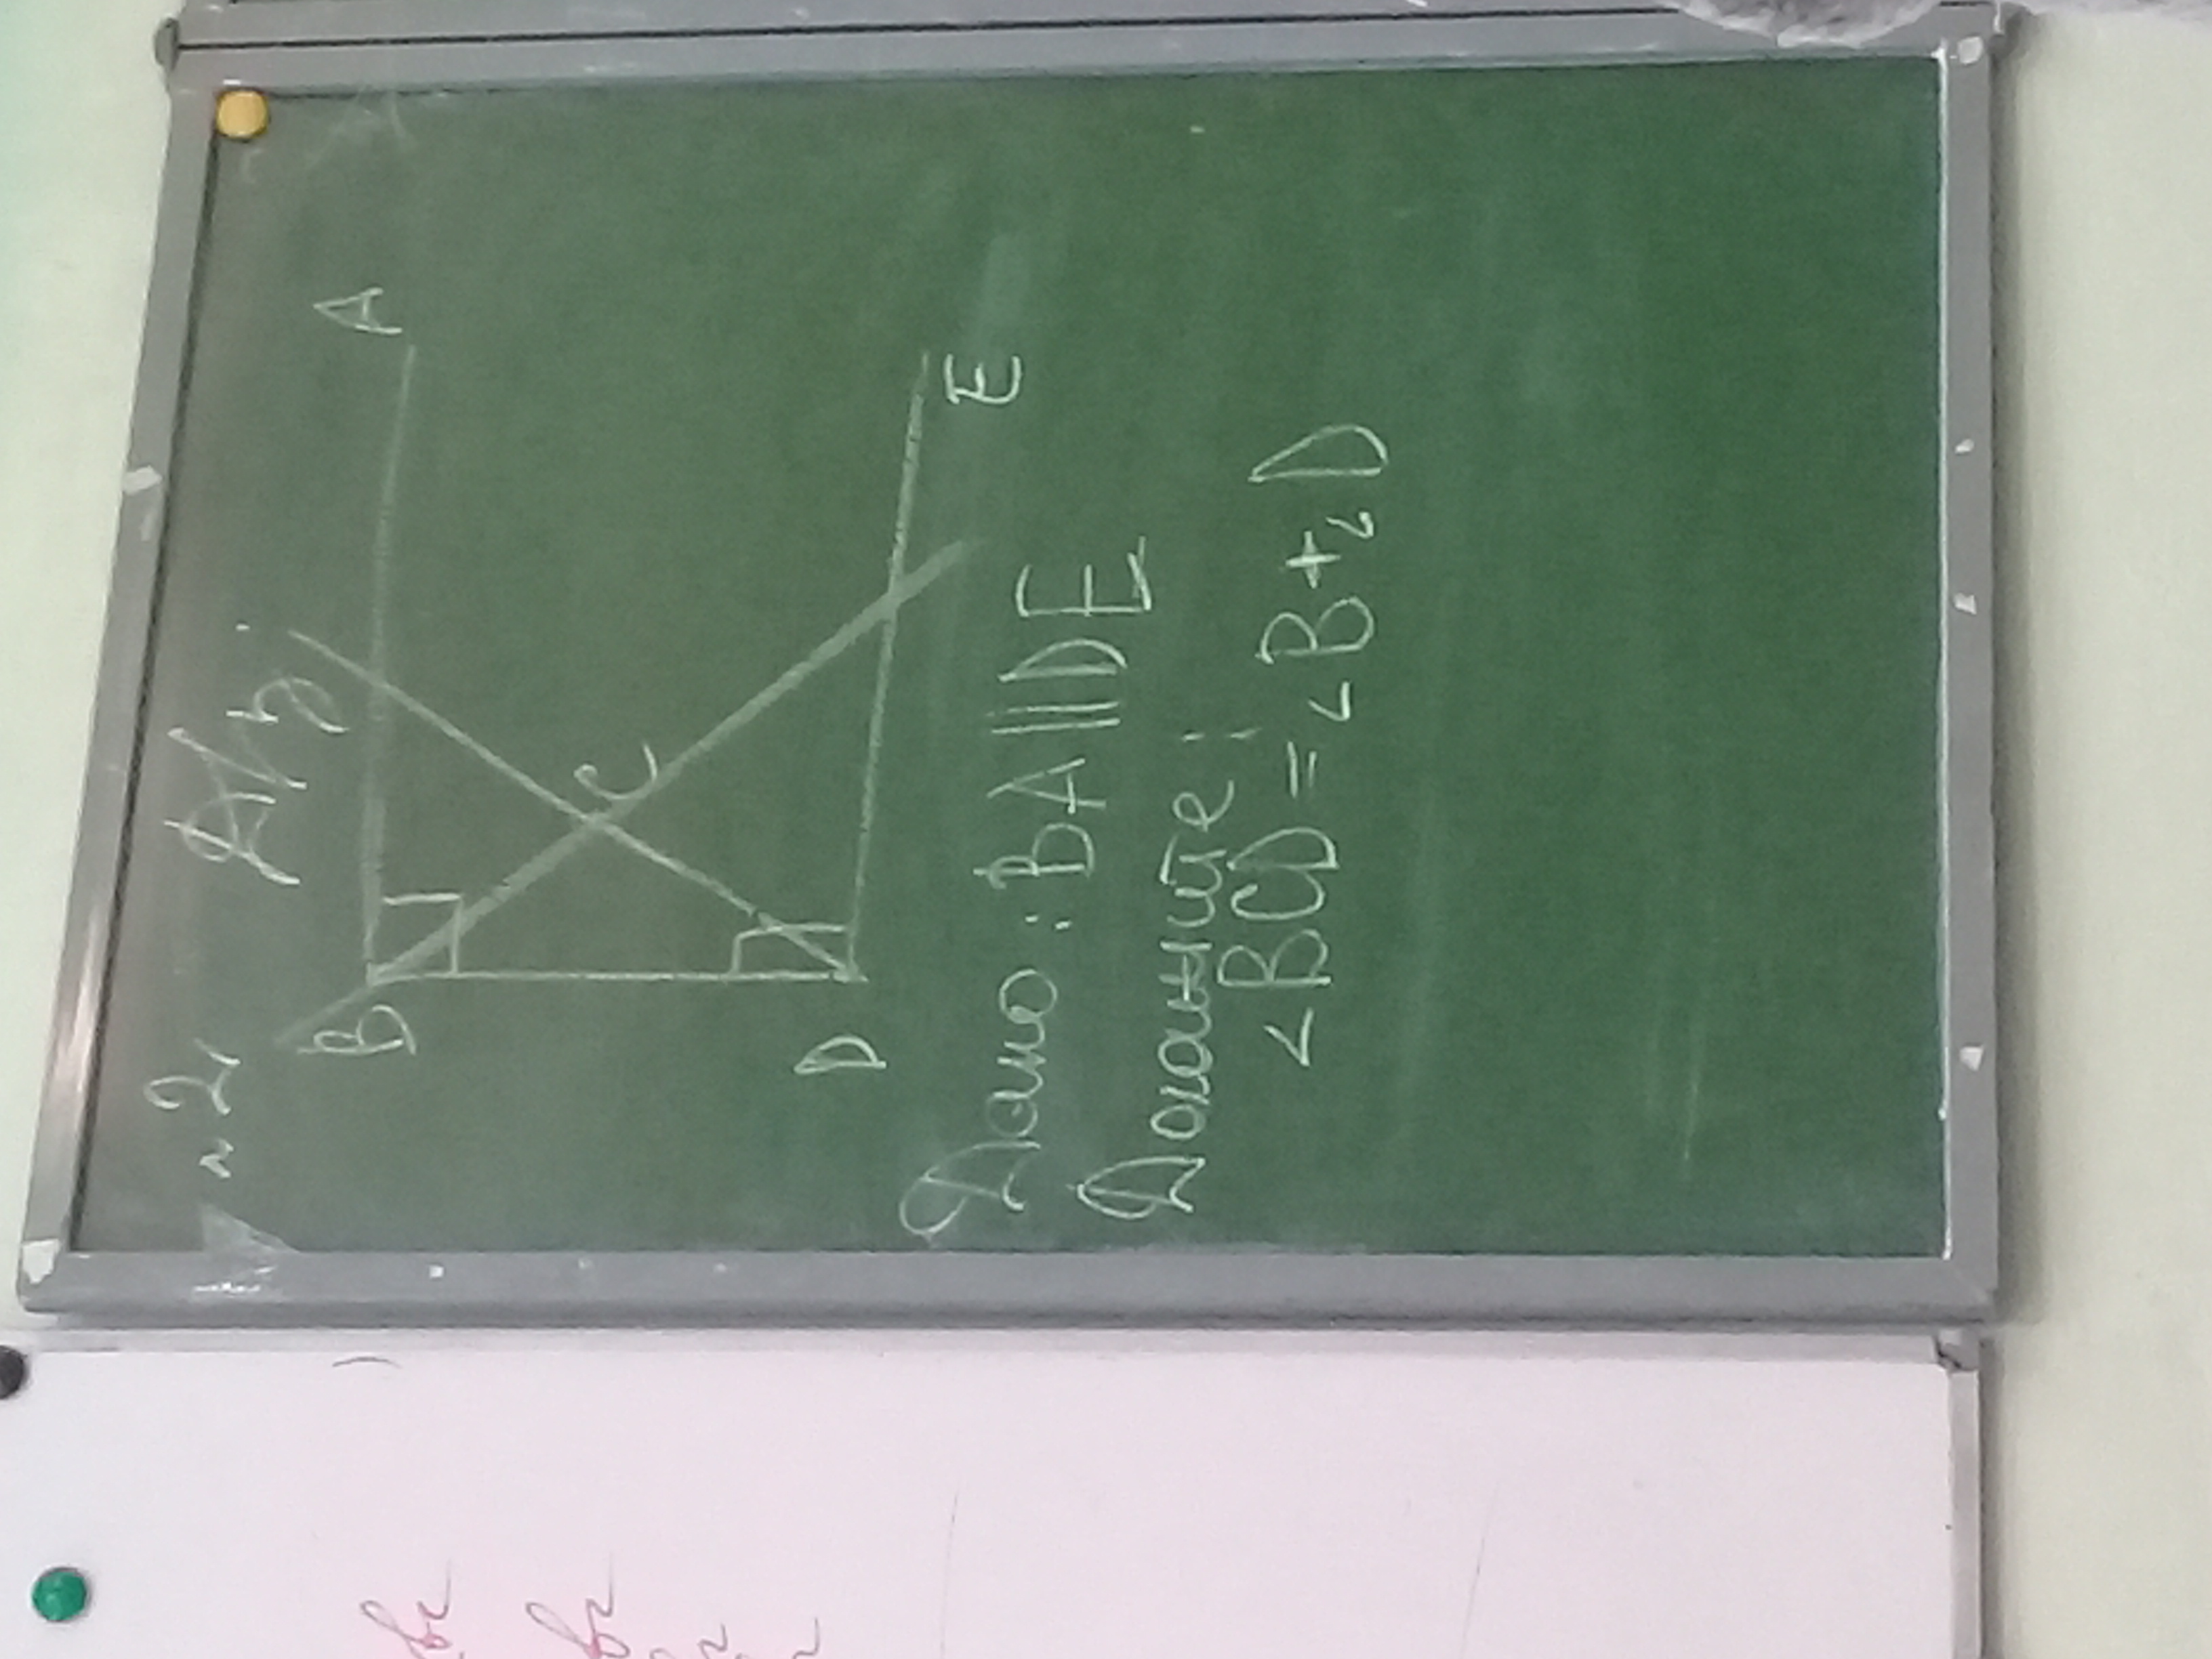 №2 Д/з
A
B
C
D
E
Дано: BA||DE
Докажите:
∠BCD = ∠B + ∠D